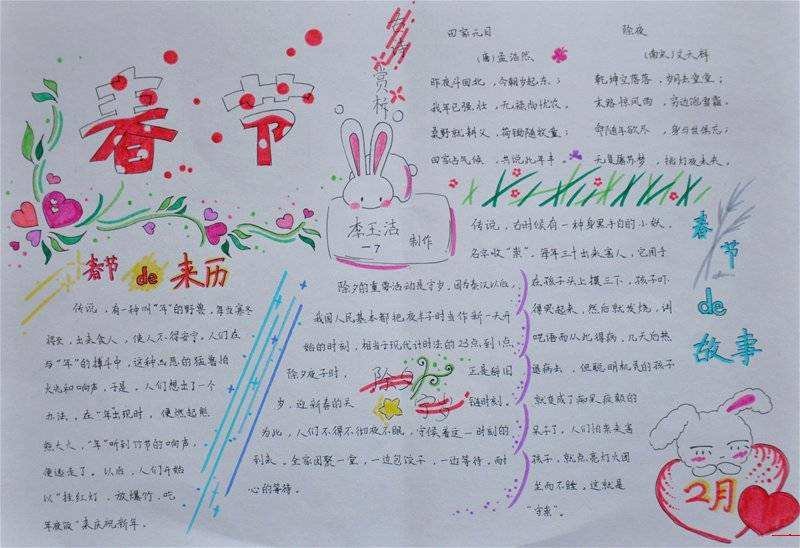 春节
诗词
赏析
田家元日
(唐)孟浩然
昨夜斗回北，今朝岁起东；
我年已强壮，无禄尚忧农。
桑野就耕父，荷锄随牧童；
田家占气候，共说此年丰。
除夜
(南宋)文天祥
乾坤空落落，岁月去堂堂；
末路惊风雨，穷边饱雪霜。
命随年欲尽，身与世俱忘；
无复屠苏梦，挑灯夜未央。
李玉洁
一7
制作
春节de来历
传说，有一种叫"年"的野兽，每当寒冬
将尽，出来食人，使人不得安宁。人们在
与"年"的搏斗中，这种凶恶的猛兽怕
火光和响声，于是，人们想出了一个
办法，在"年"出现时，便燃起熊
熊大火，"年"听到竹节的响声，
便逃走了。以后，人们开始
以"挂红灯、放爆竹、吃
年夜饭"来庆祝新年。
除夕的重要活动是守岁，因为秦汉以后，
我国人民基本都把夜半子时当作新一天开
始的时刻，相当于现代计时法的23点到1点
除夕夜子时，
正是辞旧
岁，迎新春的关
键时刻，
除夕
守岁
为此，人们不得不彻夜不眠，守候着这一时刻的
到来，全家团聚一堂，一边包饺子，一边等待，耐
心的等待。
传说，古时候有一种身黑手白的小妖，
名字收"祟"，每年三十出来害人，它用手
在孩子头上摸三下，孩子吓
得哭起来，然后就发烧，讲
呓语而从此得病，几天后热
退病去，但聪明机灵的孩子
就变成了痴呆疯癫的
呆子了，人们怕祟来害
孩子，就点亮灯火团
坐而不睡，这就是
"守祟"。
春节de故事
2月